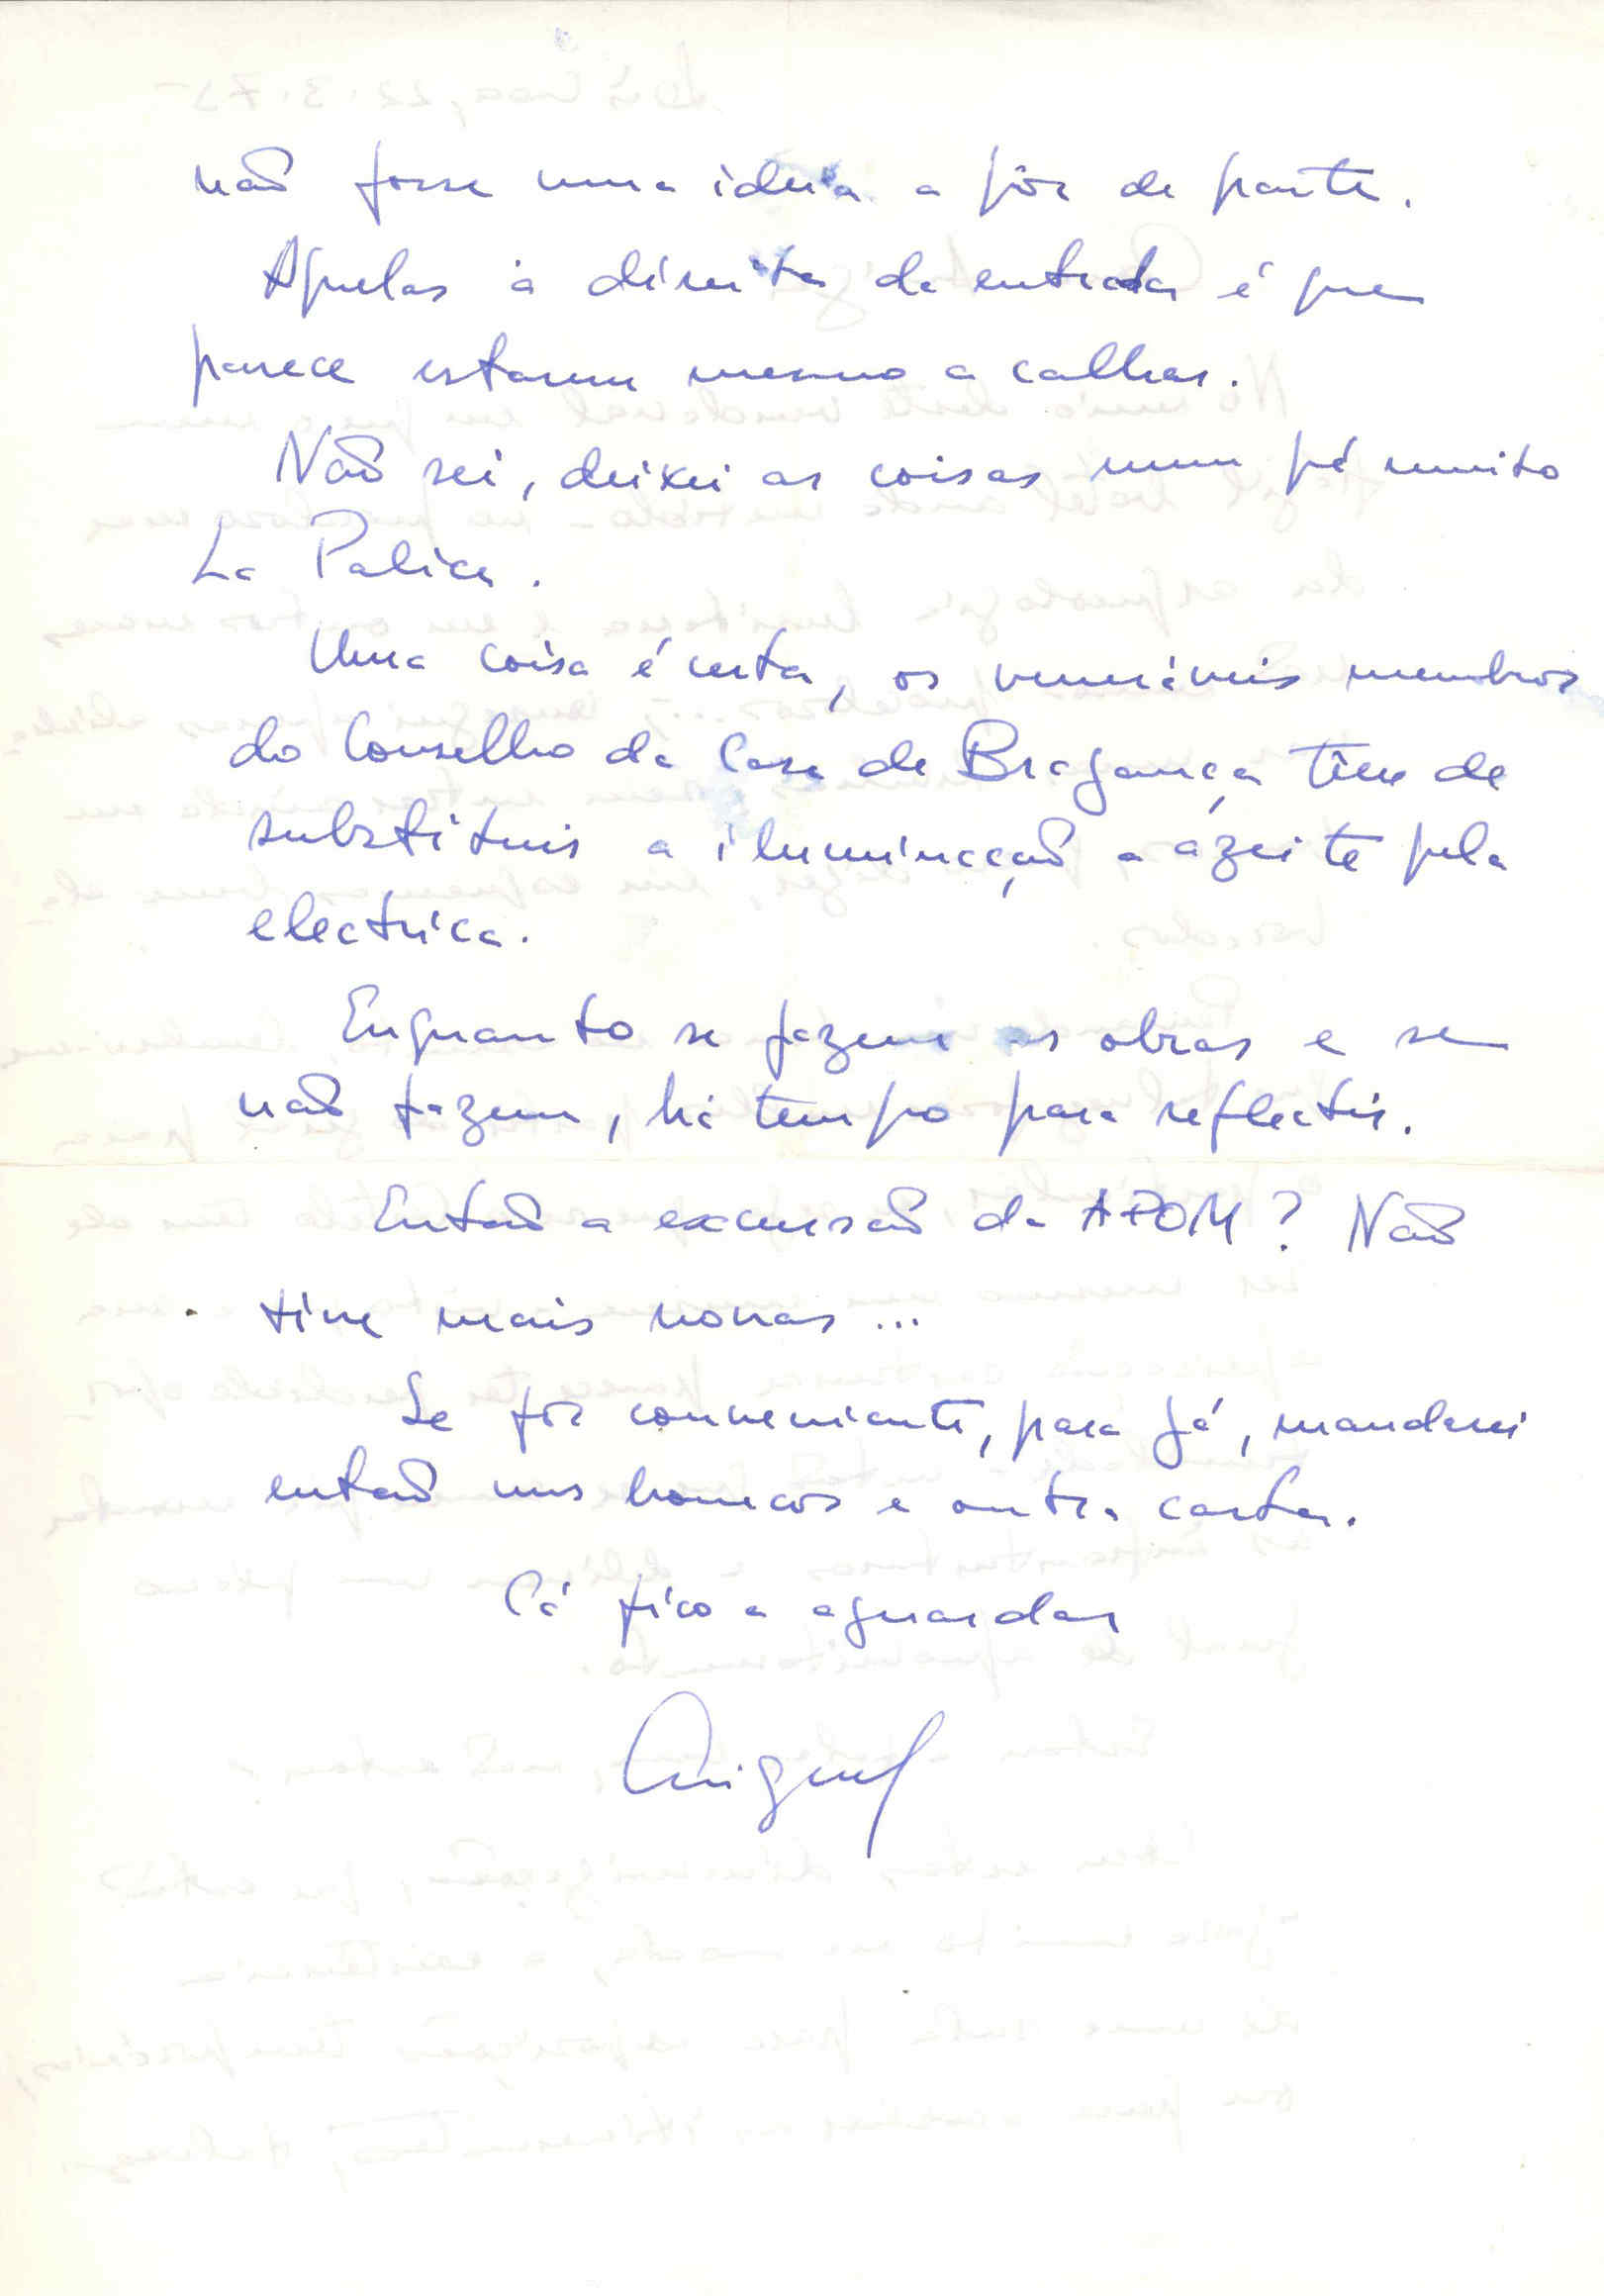 não fosse uma ideia a pôr de parte.
Aquelas à direita da entrada é que
parece estarem mesmo a calhar.
Não sei, deixei as coisas num pé muito
La Palice.
Uma coisa é certa, os veneráveis membros
do Conselho da Casa de Bragança têm de
substituir a iluminação a azeite pela
electrica.
Enquanto se fazem as obras e se
não fazem, há tempo para reflectir.
Então a excursão da APOM? Não
tive mais novas...
Se fôr conveniente, para já, mandarei
então uns bonecos e outra carta.
Cá fico a aguardar
Miguel